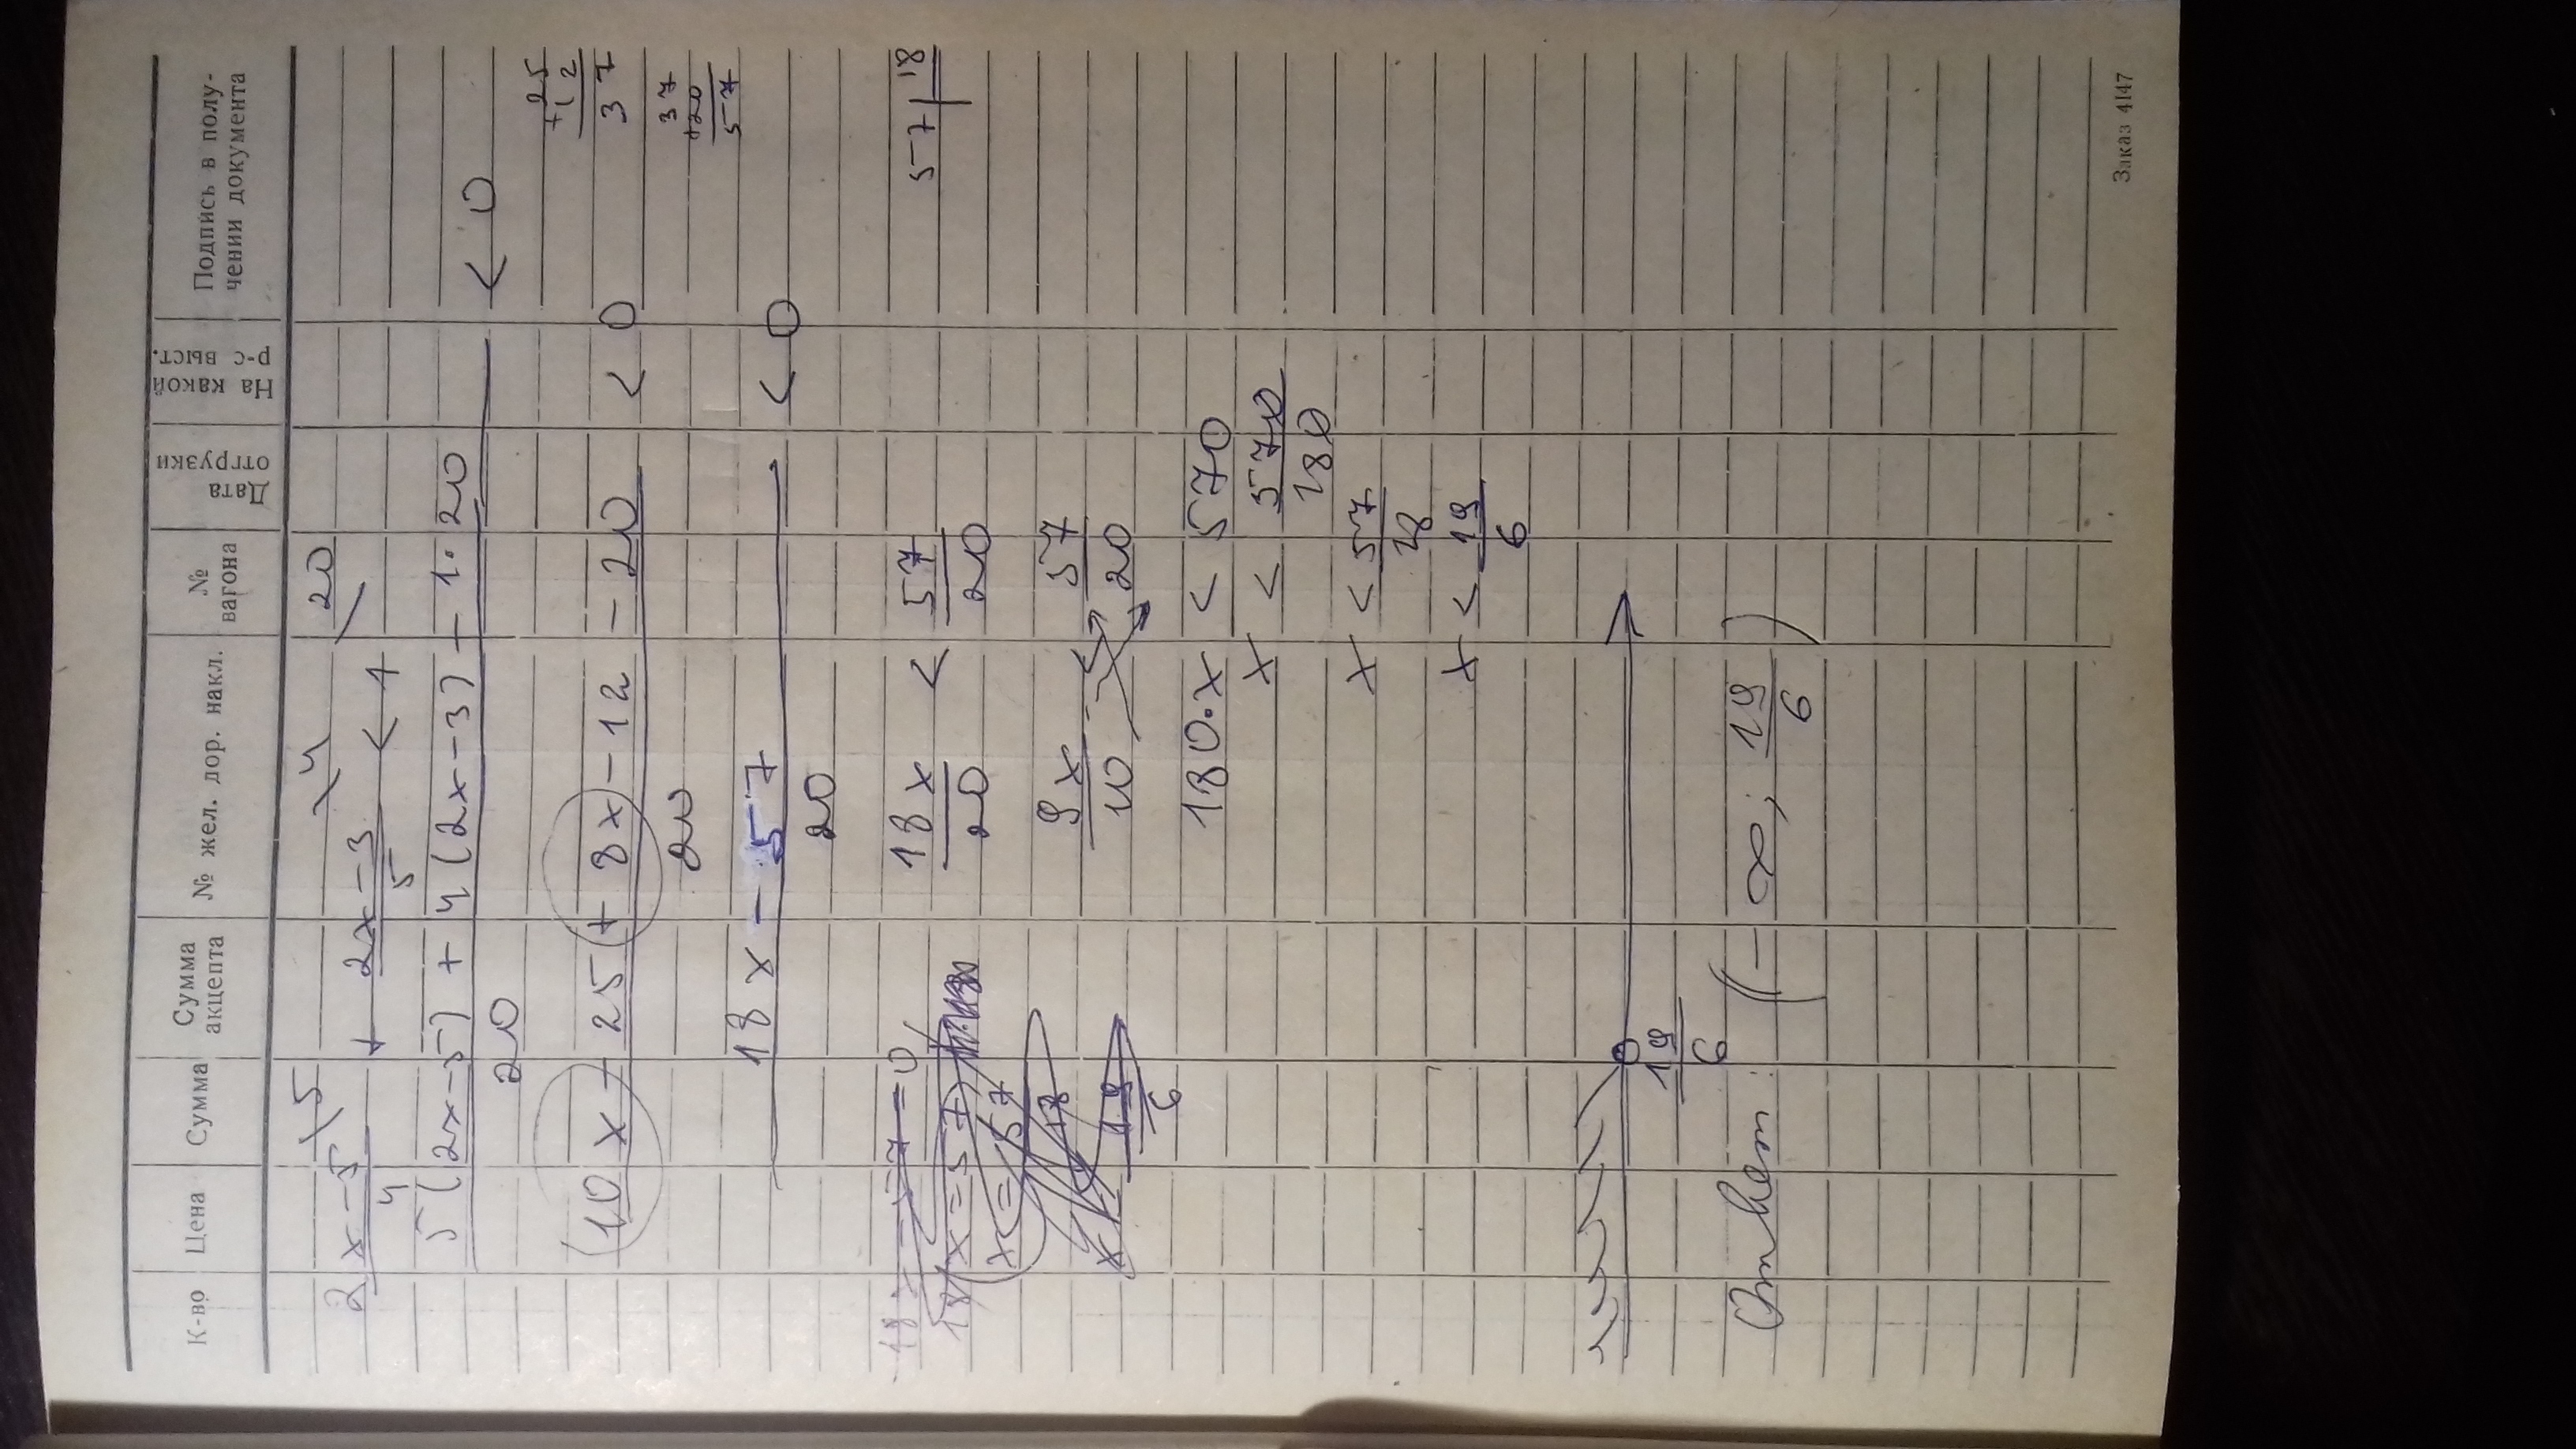 К-во Цена Сумма Сумма акцепта № жел. дор. накл. № вагона Дата отгрузки На какой р-с выст. Подпись в полу-
чении документа
\5 \4 \20
2x-5/4 + 2x-3/5 < 1
5(2x-5) + 4(2x-3) - 1·20 / 20 < 0
+25
12
37
10x - 25 + 8x - 12 - 20 / 20 < 0
37
+20
57
18x - 57 / 20 < 0
18x/20 < 57/20
57 | 18
9x/10 < 57/20
180·x < 570
x < 570/180
x < 57/18
x < 19/6
19/6
Ответ: (-∞; 19/6)
Заказ 4147